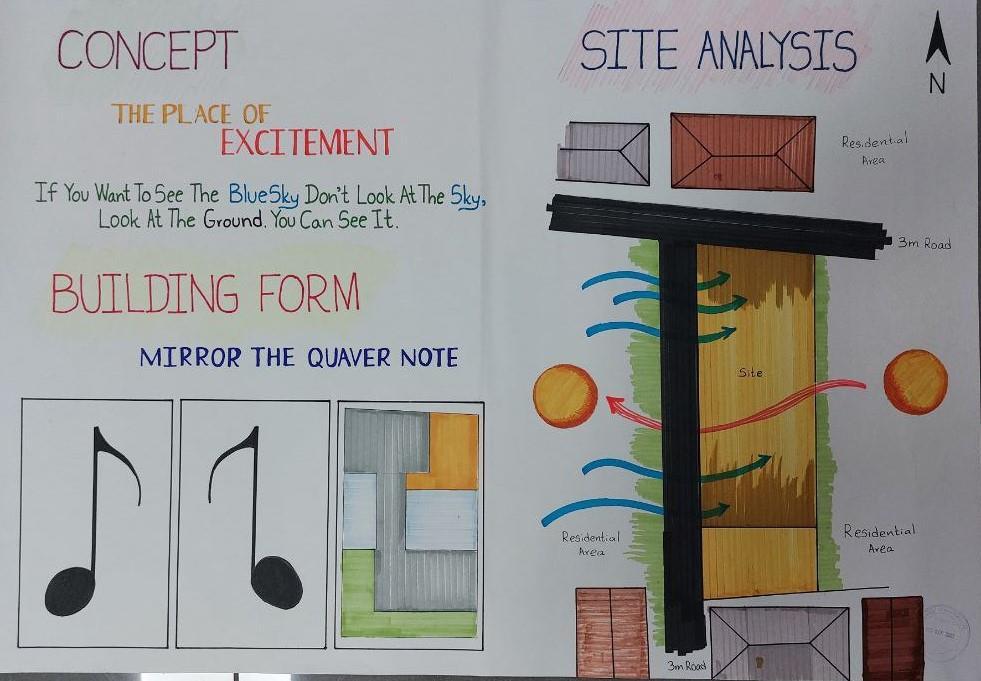 CONCEPT
THE PLACE OF
EXCITEMENT
If You Want To See The BlueSky Don't Look At The Sky,
Look At The Ground. You Can See It.
BUILDING FORM
MIRROR THE QUAVER NOTE
SITE ANALYSIS
N
Residential
Area
3m Road
Site
Residential
Area
Residential
Area
3m Road